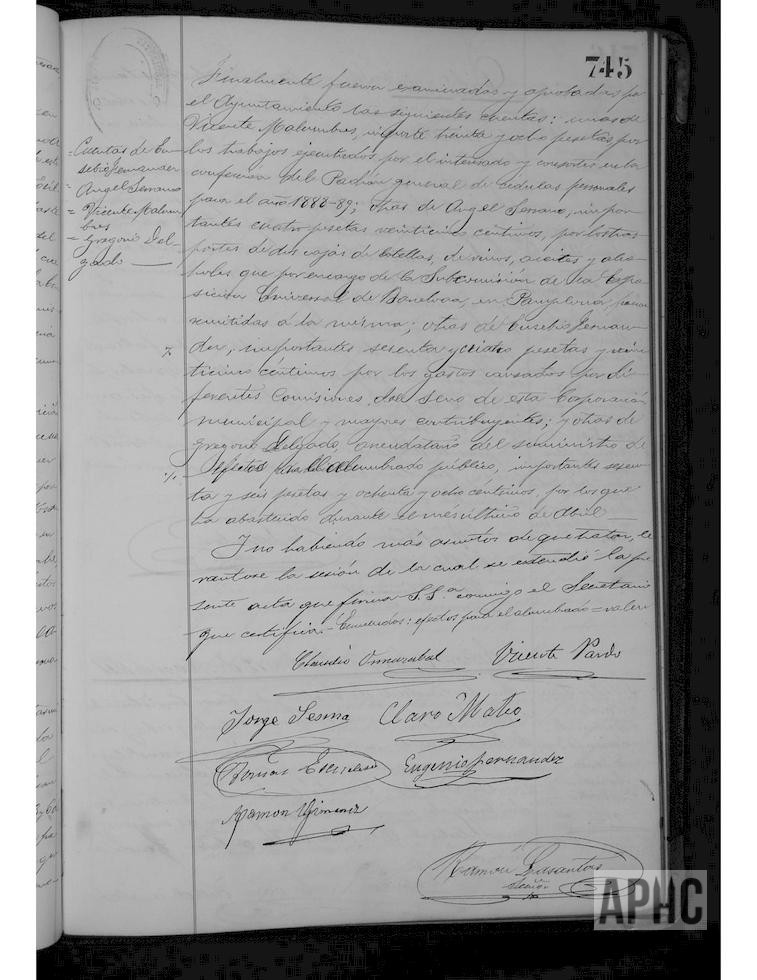 745
Finalmente fueron examinadas y aprobadas por
el Ayuntamiento las siguientes cuentas: unas de
Vicente Malumbres, importe treinta y ocho pesetas por
los trabajos ejecutados por el interesado y consortes en la
confección del Padrón general de cédulas personales
para el año 1888-89; otras de Angel Serrano, impor-
tantes cuatro pesetas veinticinco céntimos, por los tras-
portes de dos cajas de botellas, de vinos, aceites y alco-
holes que por encargo de la Subcomisión de la Expo-
sición Universal de Barcelona, en Pamplona fueron
remitidas á la misma; otras de Eusebio Fernan-
dez, importantes sesenta y cuatro pesetas y vein-
ticinco céntimos por los gastos causados por di-
ferentes Comisiones del seno de esta Corporación
municipal y mayores contribuyentes; y otras de
Gregorio Delgado arrendatario del suministro de
efectos para el alumbrado público, importantes sesen-
ta y seis pesetas y ochenta y ocho céntimos, por los que
ha abastecido durante el mes último de Abril
Y no habiendo más asuntos de que tratar, le
vantose la sesión de la cual se extendió la pre
sente acta que firma S.Sª conmigo el Secretario
que certifico.- Enmendados: efectos para el alumbrado = valen
Cuentas de Eu-
sebio Fernandez
= Angel Serrano
= Vicente Malum
bres
= Gregorio Del-
gado
Claudio Vicente Pardo
Jorge Sesma Claro Mateo
Eugenio Fernandez
Ramon Gimenez
Ramón Lasantas
APHC